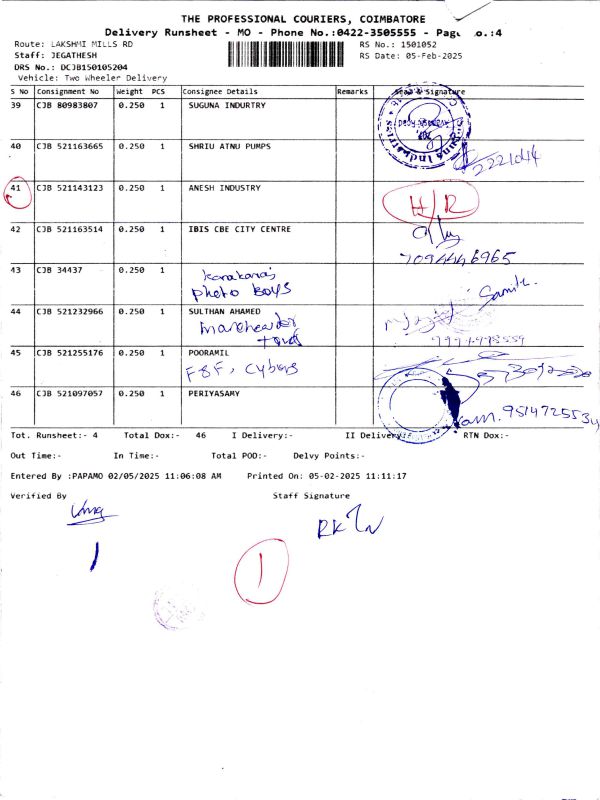 THE PROFESSIONAL COURIERS, COIMBATORE
Delivery Runsheet - MO - Phone No.:0422-3505555 - Pag o.:4
Route: LAKSHMI MILLS RD RS No.: 1501052
Staff: JEGATHESH RS Date: 05-Feb-2025
DRS No.: DCJB150105204
Vehicle: Two Wheeler Delivery
S No Consignment No Weight PCS Consignee Details Remarks Seal & Signature
39 CJB 80983807 0.250 1 SUGUNA INDURTRY
40 CJB 521163665 0.250 1 SHRIU ATNU PUMPS
41 CJB 521143123 0.250 1 ANESH INDUSTRY H/R
42 CJB 521163514 0.250 1 IBIS CBE CITY CENTRE
7094446965
43 CJB 34437 0.250 1
photo Boys
44 CJB 521232966 0.250 1 SULTHAN AHAMED
45 CJB 521255176 0.250 1 POORAMIL
F8F, Cybers
46 CJB 521097057 0.250 1 PERIYASAMY
Tot. Runsheet:- 4 Total Dox:- 46 I Delivery:- II Delivery:- RTN Dox:-
Out Time:- In Time:- Total POD:- Delvy Points:-
Entered By :PAPAMO 02/05/2025 11:06:08 AM Printed On: 05-02-2025 11:11:17
Verified By Staff Signature
1